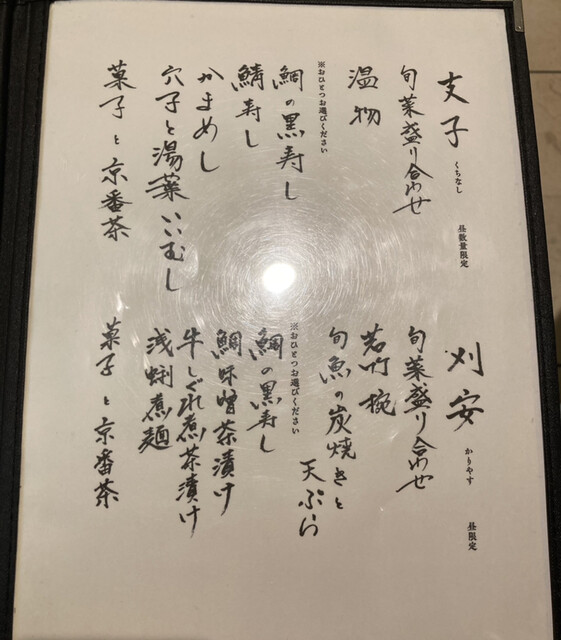 支子
くちなし
昼数量限定
旬菜盛り合わせ
温物
※おひとつお選びください
鯛の黒寿し
鯖寿し
かまめし
穴子と湯葉いいむし
菓子と京番茶
刈安
かりやす
昼限定
旬菜盛り合わせ
若竹椀
旬魚の炭焼きと
天ぷら
※おひとつお選びください
鯛の黒寿し
鯛味噌茶漬け
牛しぐれ煮茶漬け
浅蜊煮麺
菓子と京番茶